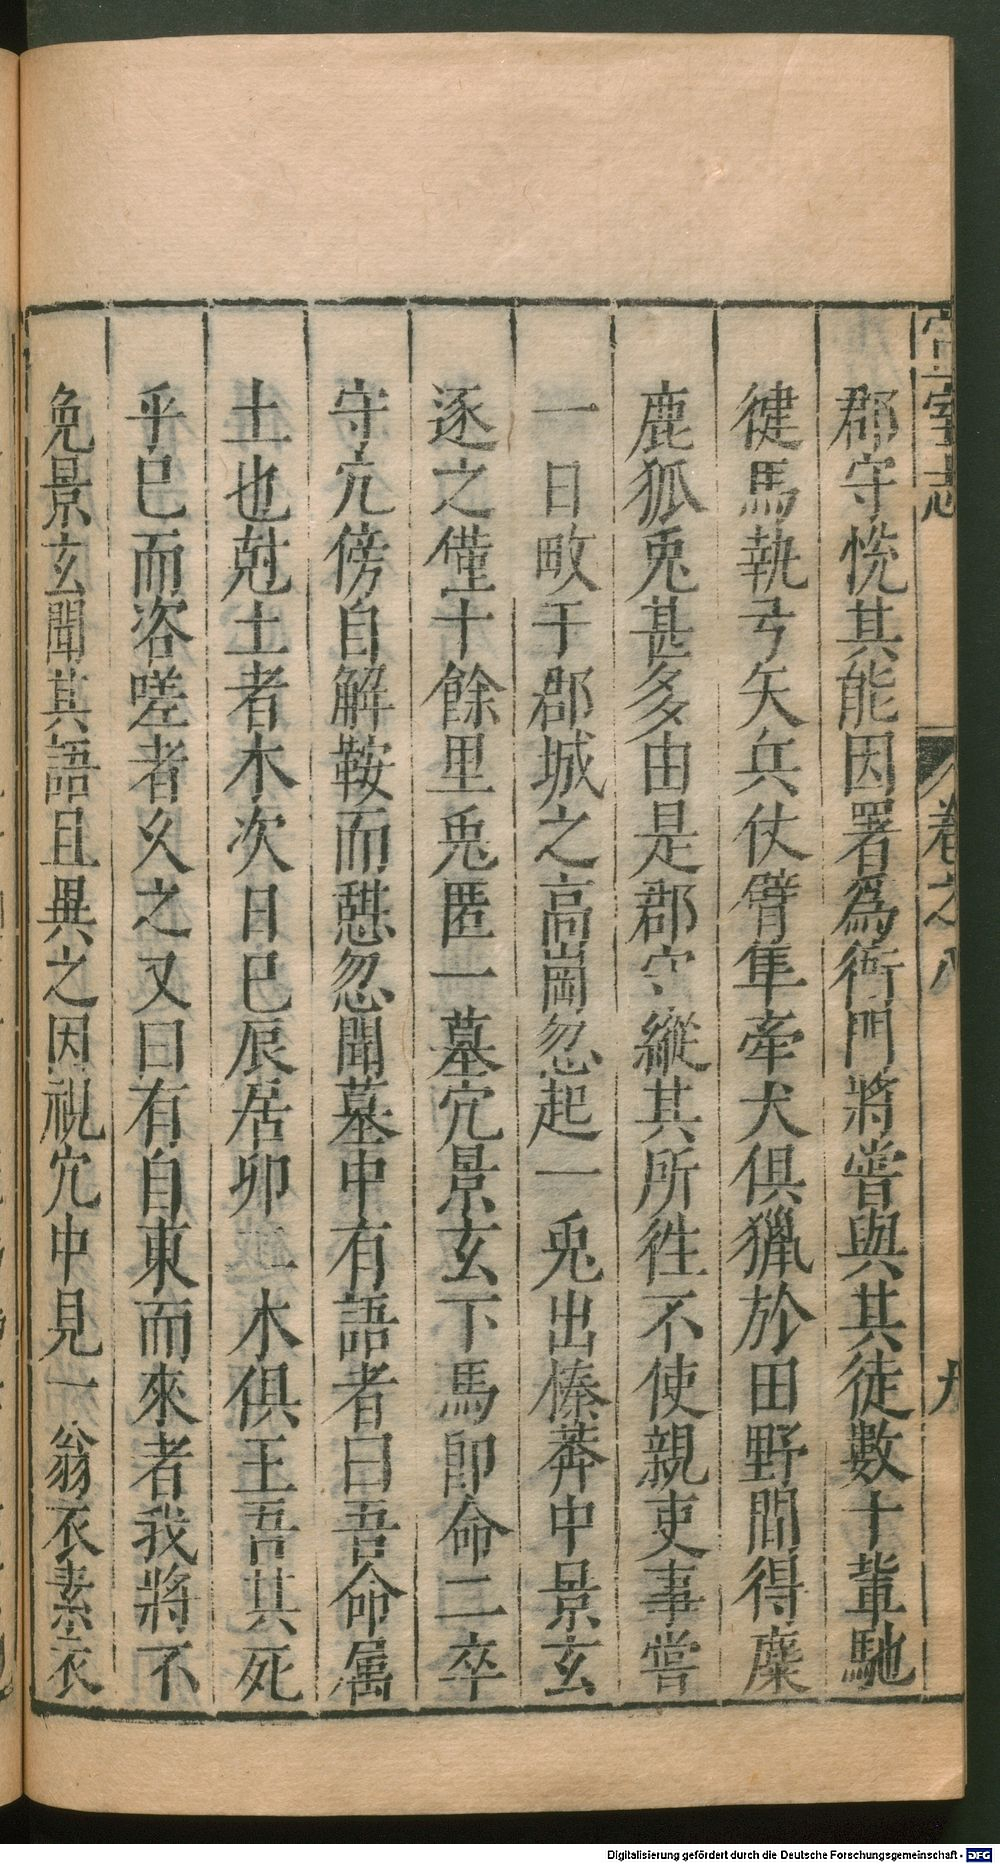 宣室志 卷之八 九
郡守悦其能因署爲衙門將嘗與其徒數十輩馳
健馬執弓矢兵仗臂隼牽犬俱獵於田野間得麋
鹿狐兎甚多由是郡守縱其所徃不使親吏事嘗
一日畋于郡城之高崗忽起一兎出榛莽中景玄
逐之僅十餘里兎匿一墓穴景玄下馬即命二卒
守穴傍自解鞍而憇忽聞墓中有語者曰吾命属
土也尅土者木次日巳辰居卯二木俱王吾其死
乎巳而咨嗟者乆之又曰有自東而來者我將不
免景玄聞其語且異之因視穴中見一翁衣素衣
Digitalisierung gefördert durch die Deutsche Forschungsgemeinschaft - DFG